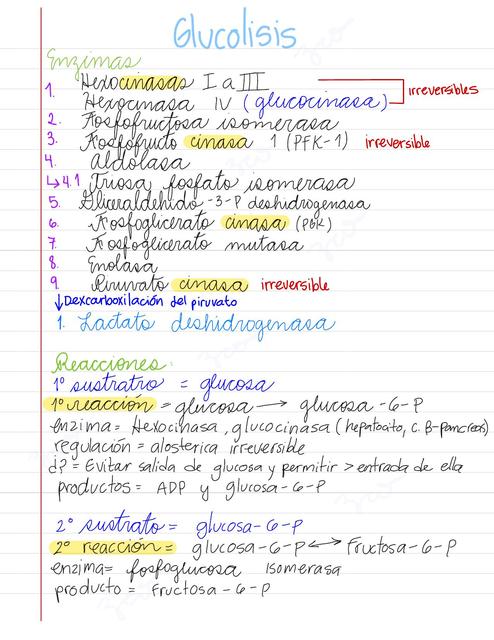 Glucolisis
Enzimas
1. Hexocinasas I a III
Hexocinasa IV (glucocinasa) irreversibles
2. Fosfofructosa isomerasa
3. Fosfofructo cinasa 1 (PFK-1) irreversible
4. aldolasa
↳4.1 Triosa fosfato isomerasa
5. Gliceraldehido -3-P deshidrogenasa
6. Fosfoglicerato cinasa (PGK)
7. Fosfoglicerato mutasa
8. Enolasa
9. Piruvato cinasa irreversible
↓Dexcarboxilación del piruvato
1. Lactato deshidrogenasa
Reacciones:
1° sustratro = glucosa
1° reacción = glucosa → glucosa-6-P
enzima= Hexocinasa, glucocinasa (hepatocito, c. β-pancreas)
regulación = alosterica irreversible
d? = Evitar salida de glucosa y permitir > entrada de ella
productos = ADP y glucosa-6-P
2° sustrato = glucosa-6-P
2° reacción = glucosa-6-P ↔ Fructosa-6-P
enzima= fosfoglucosa isomerasa
producto = Fructosa-6-P